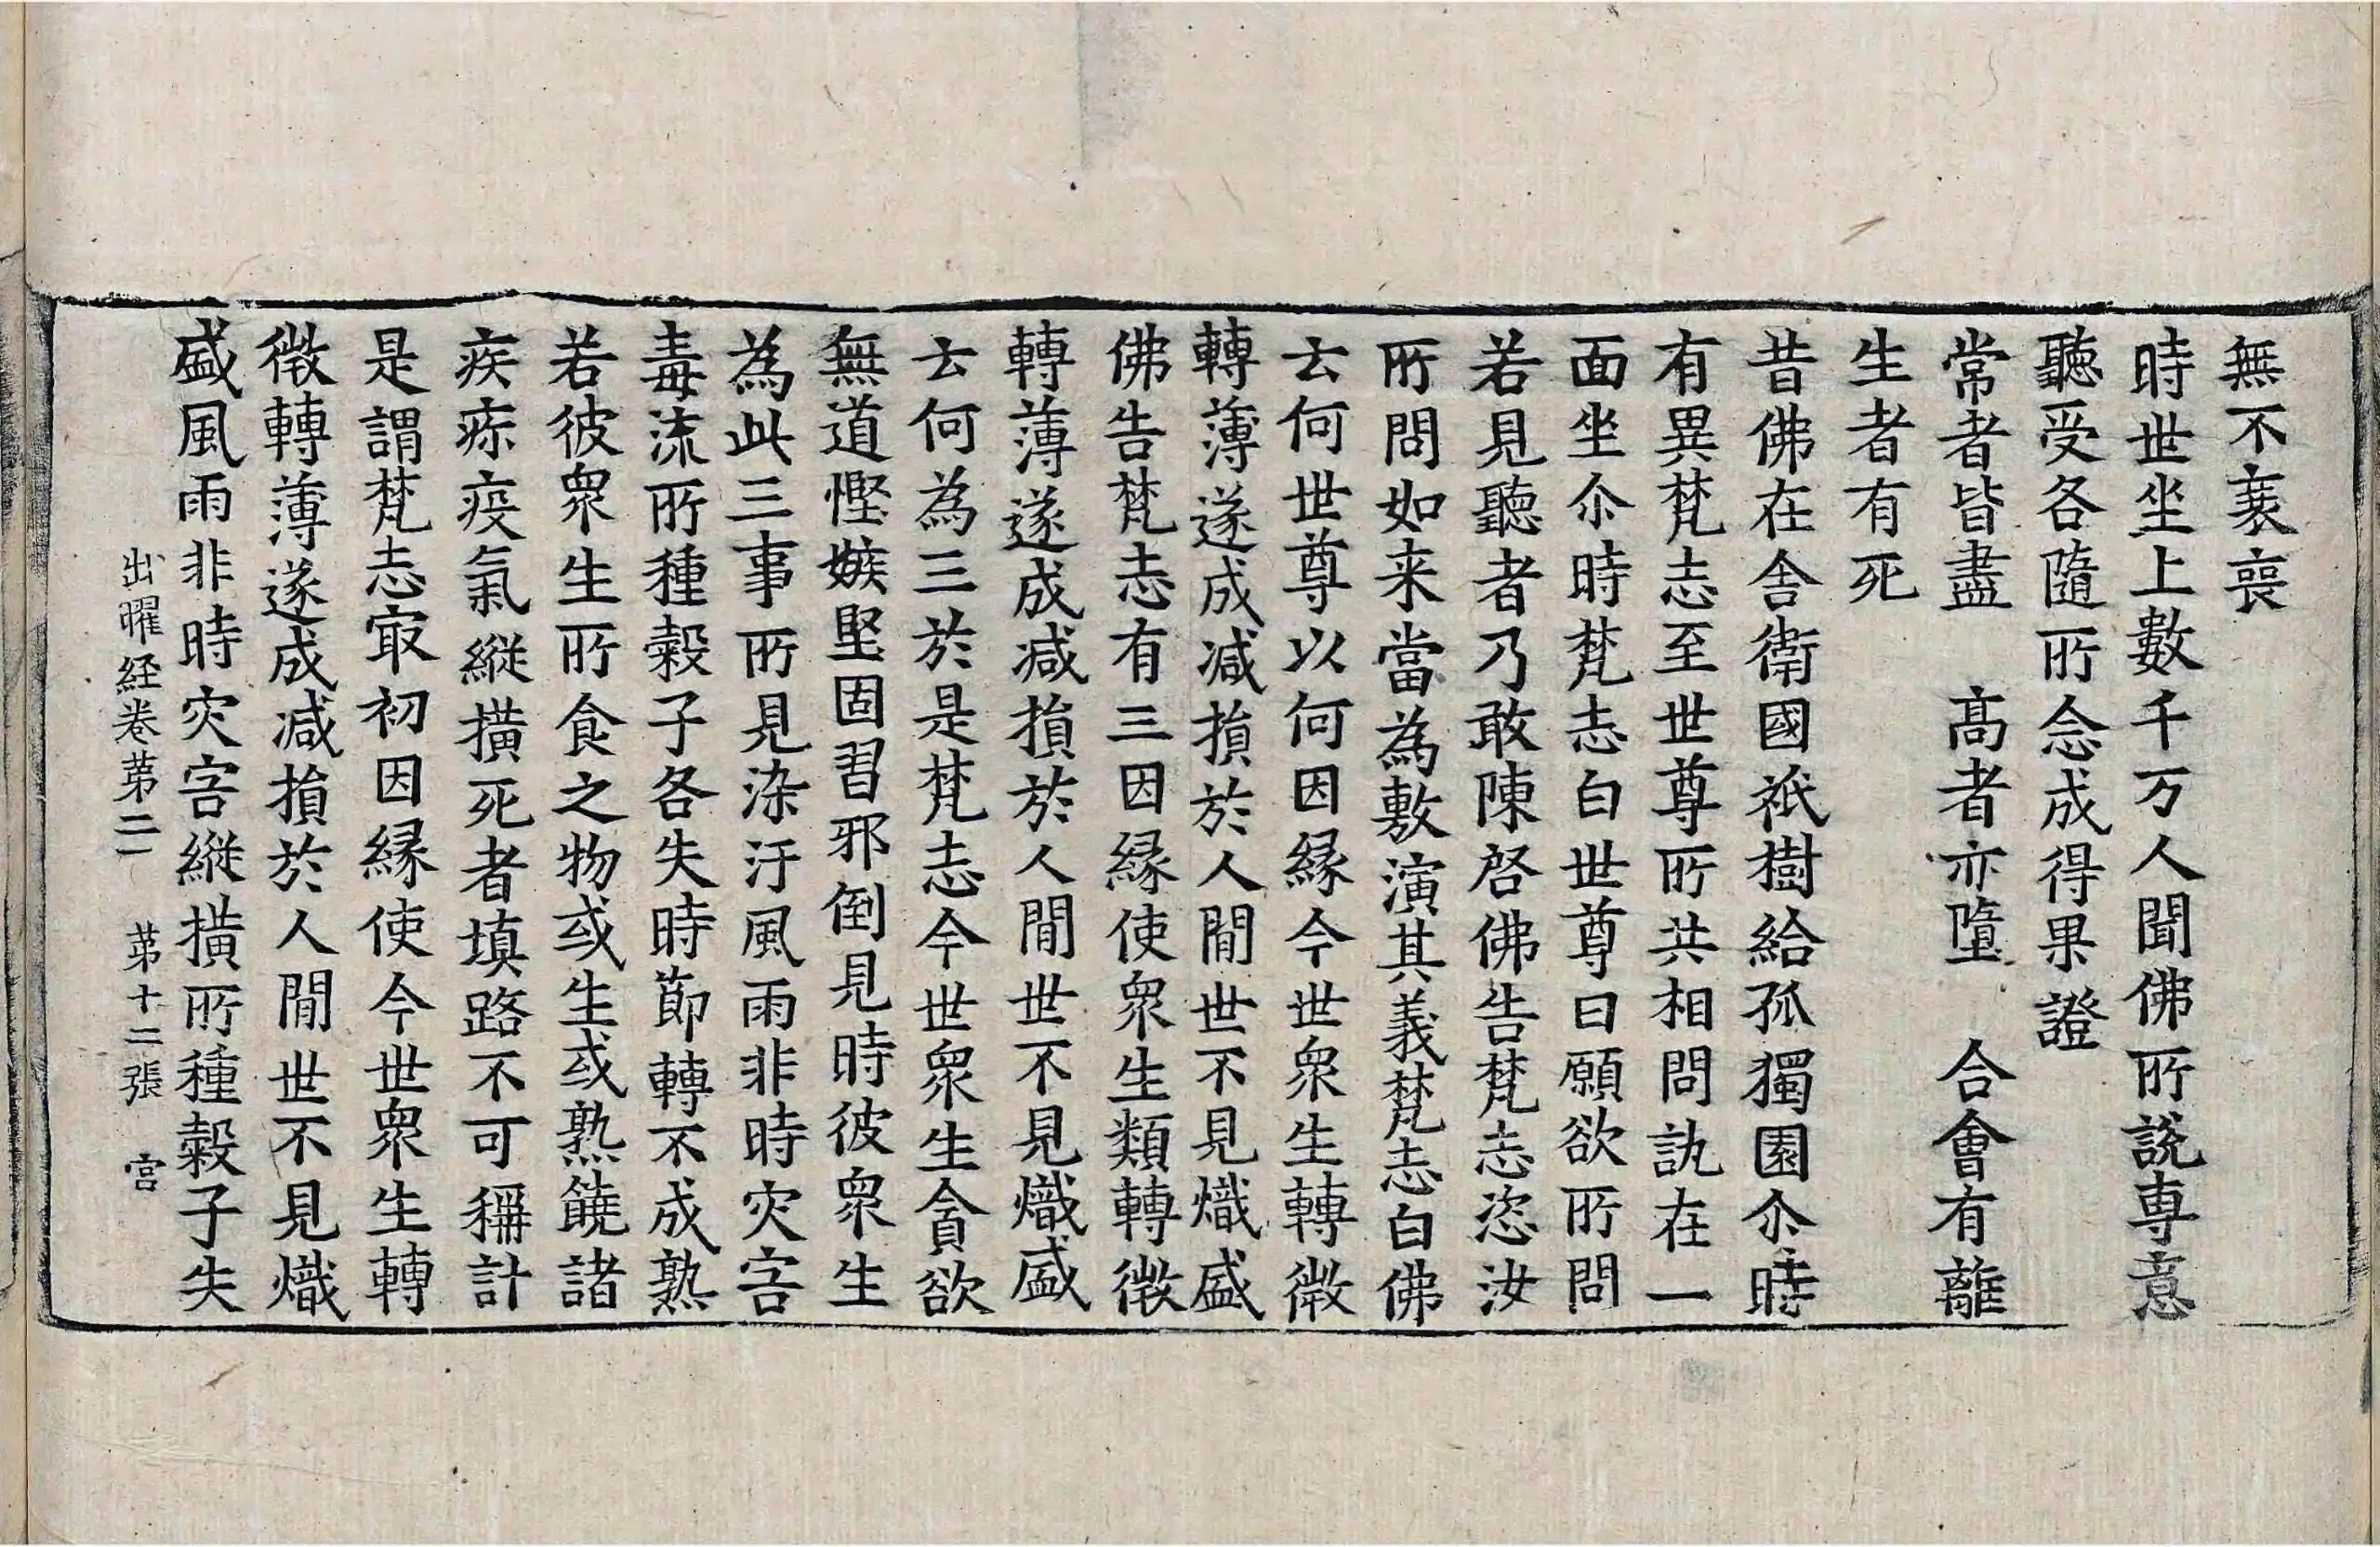 無不衰喪
時世坐上數千万人聞佛所說專意
聽受各隨所念成得果證
常者皆盡　高者亦墮　合會有離
生者有死
昔佛在舎衛國祇樹給孤獨園尒時
有異梵志至世尊所共相問訊在一
面坐尒時梵志白世尊曰願欲所問
若見聽者乃敢陳啓佛告梵志恣汝
所問如来當為敷演其義梵志白佛
云何世尊以何因縁今世衆生轉微
轉薄遂成減損於人間世不見熾盛
佛告梵志有三因縁使衆生類轉微
轉薄遂成減損於人間世不見熾盛
云何為三於是梵志今世衆生貪欲
無道慳嫉堅固習邪倒見時彼衆生
為此三事所見染汙風雨非時灾害
毒流所種穀子各失時節轉不成熟
若彼衆生所食之物或生或熟饒諸
疾疹疫氣縱撗死者填路不可稱計
是謂梵志㝡初因縁使今世衆生轉
微轉薄遂成減損於人間世不見熾
盛風雨非時灾害縱撗所種穀子失
出曜経卷第二　第十二張　宮